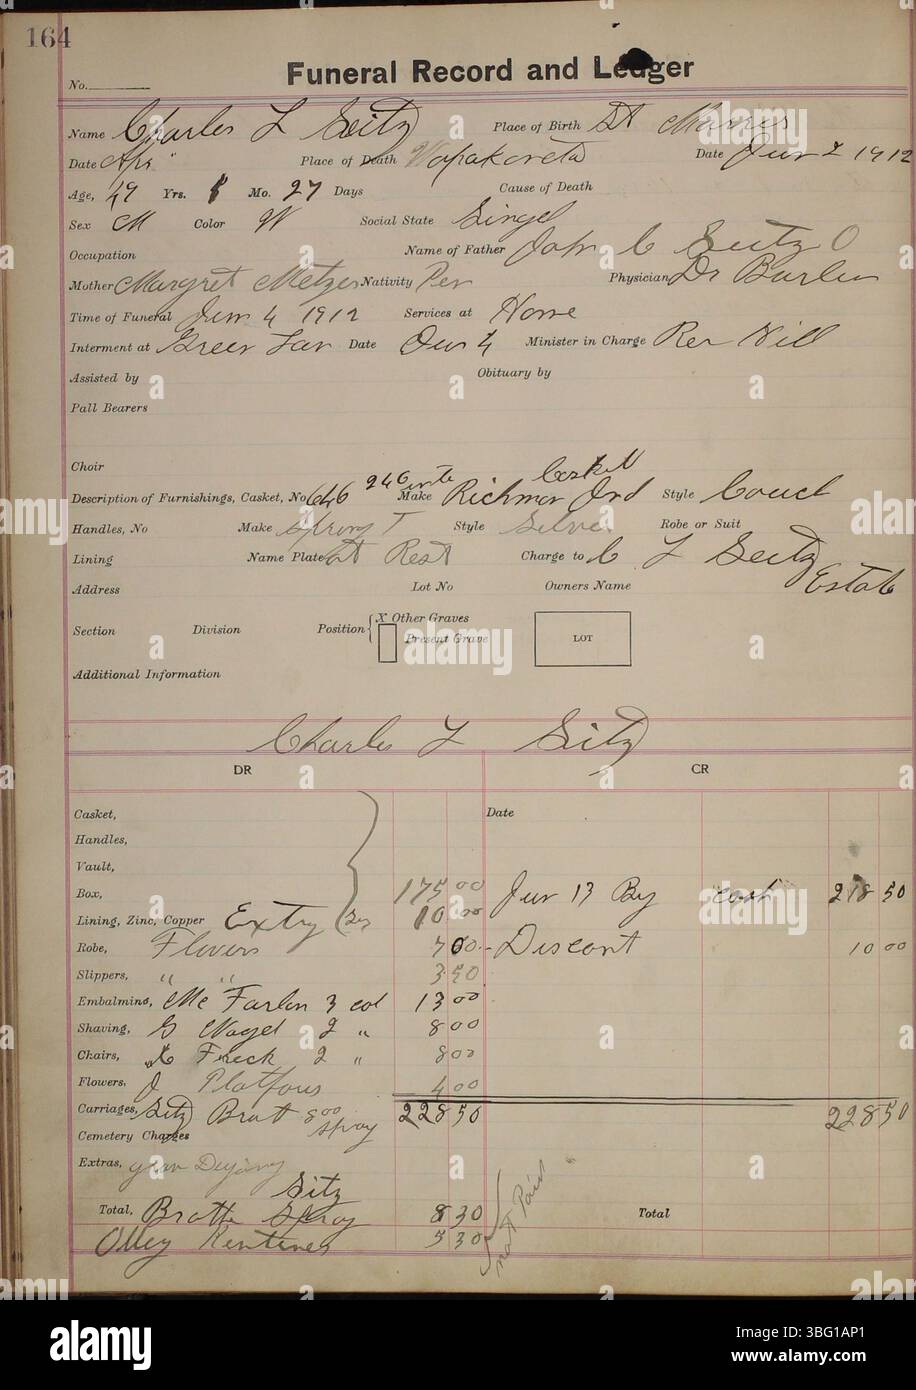 164
Funeral Record and Ledger
No.
Name Charles L Seitz Place of Birth St Marys
Date Apr " Place of Death Wapakoneta Date Jun 2 1912
Age, 49 Yrs. 8 Mo. 27 Days Cause of Death
Sex M Color W Social State Singel
Occupation Name of Father John C Seitz O
Mother Margret Metzer Nativity Pen Physician Dr Burlen
Time of Funeral Jun 4 1912 Services at Home
Interment at Green Lan Date Jun 4 Minister in Charge Rev Will
Assisted by Obituary by
Pall Bearers
Choir
Description of Furnishings, Casket, No 646 Make Richmon Ind Casket Style Couch
Handles, No Make Spring T Style Silver Robe or Suit
Lining Name Plate At Rest Charge to C L Seitz Estate
Address Lot No Owners Name
Section Division Position X Other Graves
Present Grave
LOT
Additional Information
Charles L Seitz
DR CR
Casket, Date
Handles,
Vault,
Box, 175 00 Jun 13 By cash 218 50
Lining, Zinc, Copper 10 00
Robe, Flowers 7 00 Discont 10 00
Slippers, " " 3 50
Embalming, Mc Farlen 3 col 13 00
Shaving, G Nagel 2 " 8 00
Chairs, Freck 2 " 8 00
Flowers, J 4 00
Carriages, Seitz Brot 8 00 Spray 228 50 228 50
Cemetery Charges
Extras,
Seitz
Total, Broth Spray 8 30 Total
5 30
not Paid
alamy
Image ID: 3BG1AP1
www.alamy.com